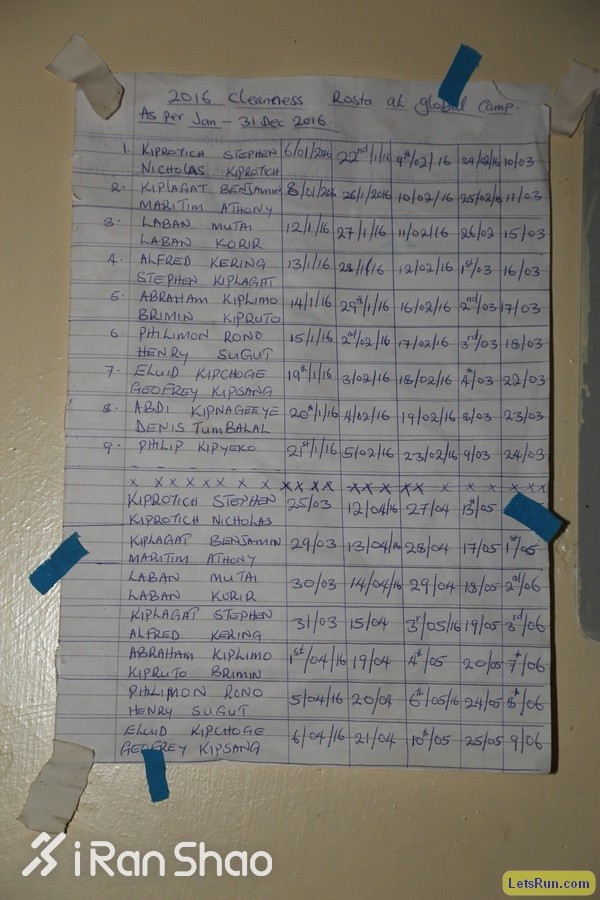 2016 Cleanness Rosta at global Camp.
As per Jan - 31 Dec 2016.
1. KIPROTICH STEPHEN 6/01/2016 22nd/1/16 9th/02/16 24/02/16 10/03
NICHOLAS KIPROTICH
2- KIPLAGAT BENJAMIN 8/01/2016 26/1/2016 10/02/16 25/02/16 11/03
MARITIM ATHONY
3- LABAN MUTAI 12/1/16 27/1/16 11/02/16 26/02 15/03
LABAN KORIR
4. ALFRED KERING 13/1/16 28/1/16 12/02/16 1st/03 16/03
STEPHEN KIPLAGAT
5- ABRAHAM KIPLIMO 14/1/16 29th/1/16 16/02/16 2nd/03 17/03
BRIMIN KIPRUTO
6- PHILIMON RONO 15/1/16 2nd/02/16 17/02/16 3rd/03 18/03
HENRY SUGUT
7- ELUID KIPCHOGE 19th/1/16 3/02/16 18/02/16 4th/03 22/03
GEOFREY KIPSANG
8- ABDI KIPNAGEEYE 20th/1/16 4/02/16 19/02/16 8/03 23/03
DENIS TUMBALAL
9- PHILIP KIPYEKO 21st/1/16 5/02/16 23/02/16 9/03 24/03
x x x x x x x x x x x x x x x x x x x x x x
KIPROTICH STEPHEN 25/03 12/04/16 27/04 13th/05
KIPROTICH NICHOLAS
KIPLAGAT BENJAMIN 29/03 13/04/16 28/04 17/05 1st/05
MARITIM ATHONY
LABAN MUTAI 30/03 14/04/16 29/04 18/05 2nd/06
LABAN KORIR
KIPLAGAT STEPHEN 31/03 15/04 3r/05/16 19/05 3rd/06
ALFRED KERING
ABRAHAM KIPLIMO 1st/04/16 19/04 4th/05 20/05 7th/06
KIPRUTO BRIMIN
PHILIMON RONO 5/04/16 20/04 6th/05/16 24/05 8th/06
HENRY SUGUT
ELUID KIPCHOGE 6/04/16 21/04 10th/05 25/05 9/06
GEOFREY KIPSANG
iRanShao
LetsRun.com